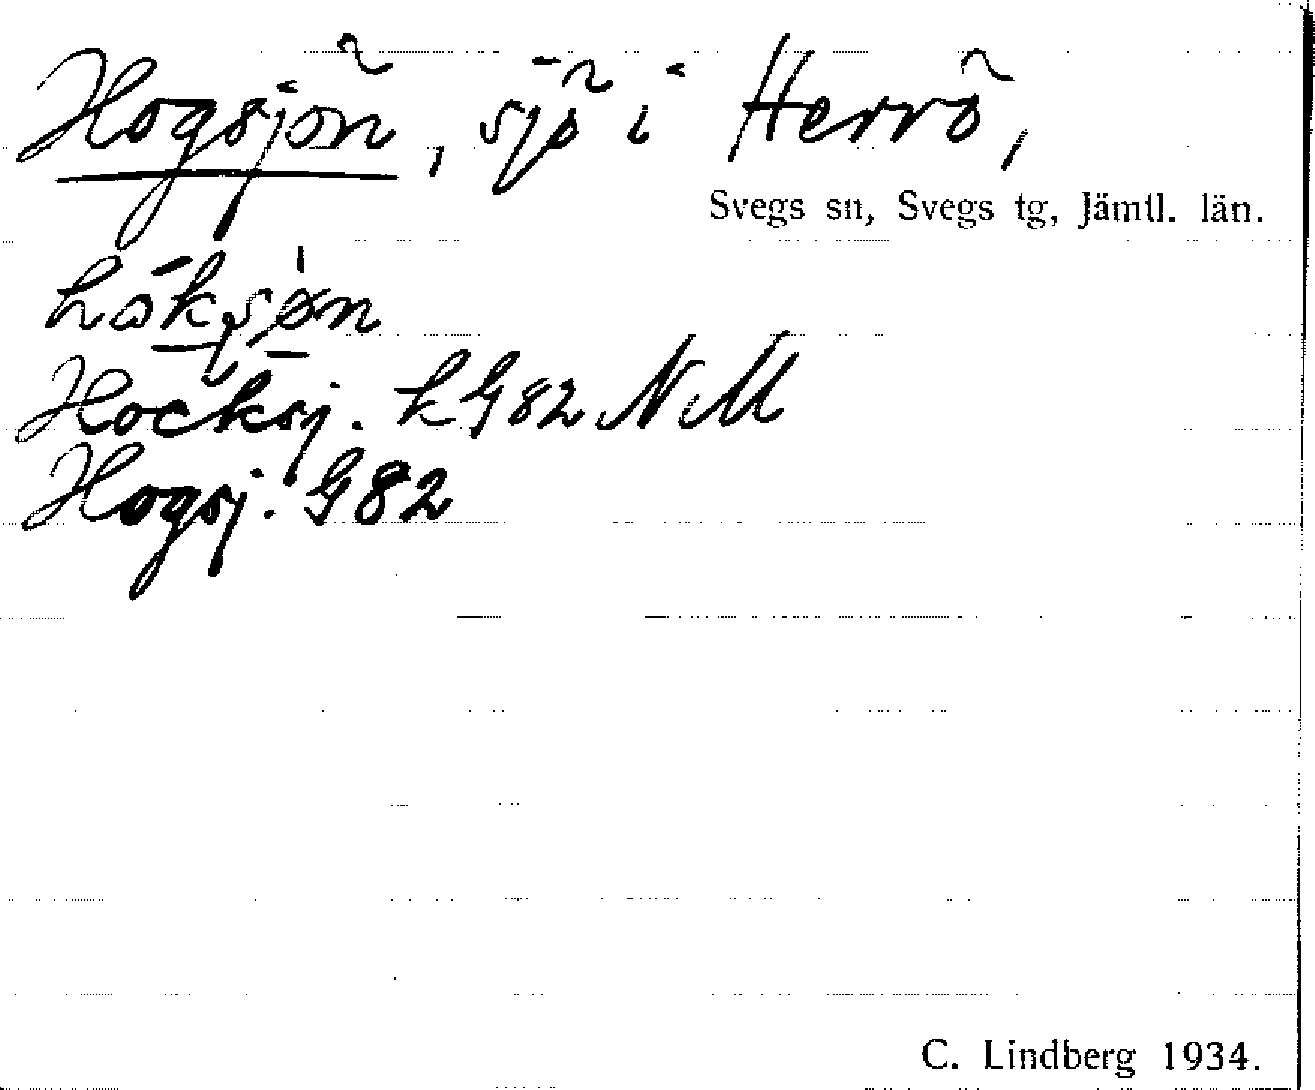 Hogsjön, sjö i Herrö,
Svegs sn, Svegs tg, Jämtl. län.
Hocksj. kG82 NM
Hogsj. G82
C. Lindberg 1934.